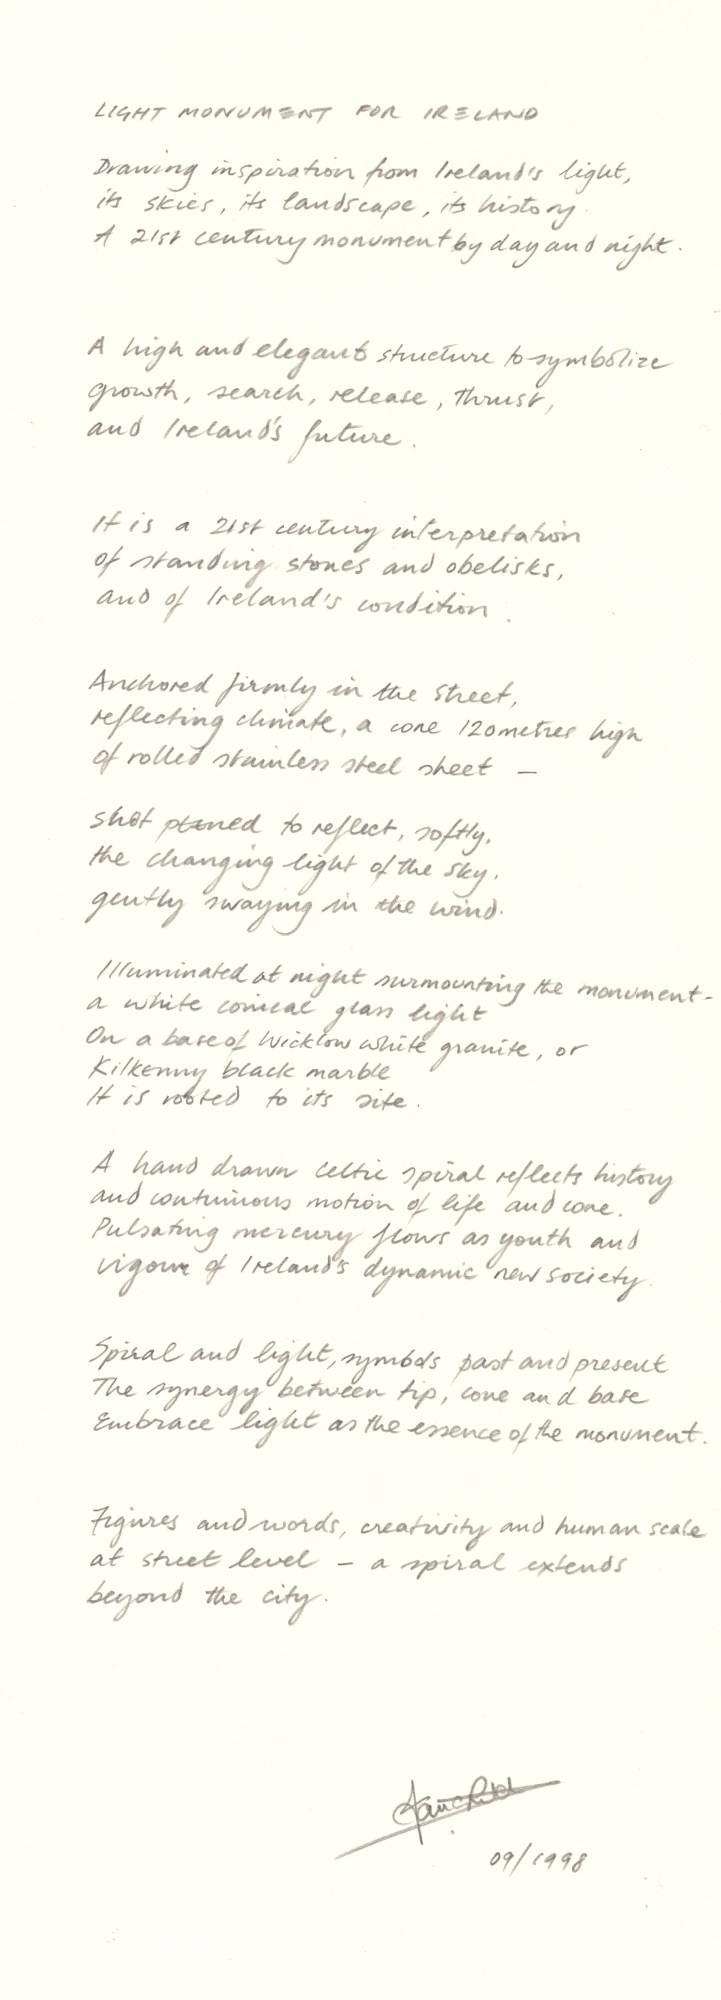 LIGHT MONUMENT FOR IRELAND
Drawing inspiration from Ireland's light,
its skies, its landscape, its history.
A 21st century monument by day and night.
A high and elegant structure to symbolize
growth, search, release, thrust,
and Ireland's future.
It is a 21st century interpretation
of standing stones and obelisks,
and of Ireland's condition.
Anchored firmly in the street,
reflecting climate, a cone 120metres high
of rolled stainless steel sheet —
shot peened to reflect, softly,
the changing light of the sky.
gently swaying in the wind.
Illuminated at night surmounting the monument -
a white conical glass light
On a base of Wicklow white granite, or
Kilkenny black marble
It is rooted to its site.
A hand drawn celtic spiral reflects history
and continuous motion of life and cone.
Pulsating mercury flows as youth and
vigour of Ireland's dynamic new society.
Spiral and light, symbols past and present
The synergy between tip, cone and base
Embrace light as the essence of the monument.
Figures and words, creativity and human scale
at street level – a spiral extends
beyond the city.
09/1998